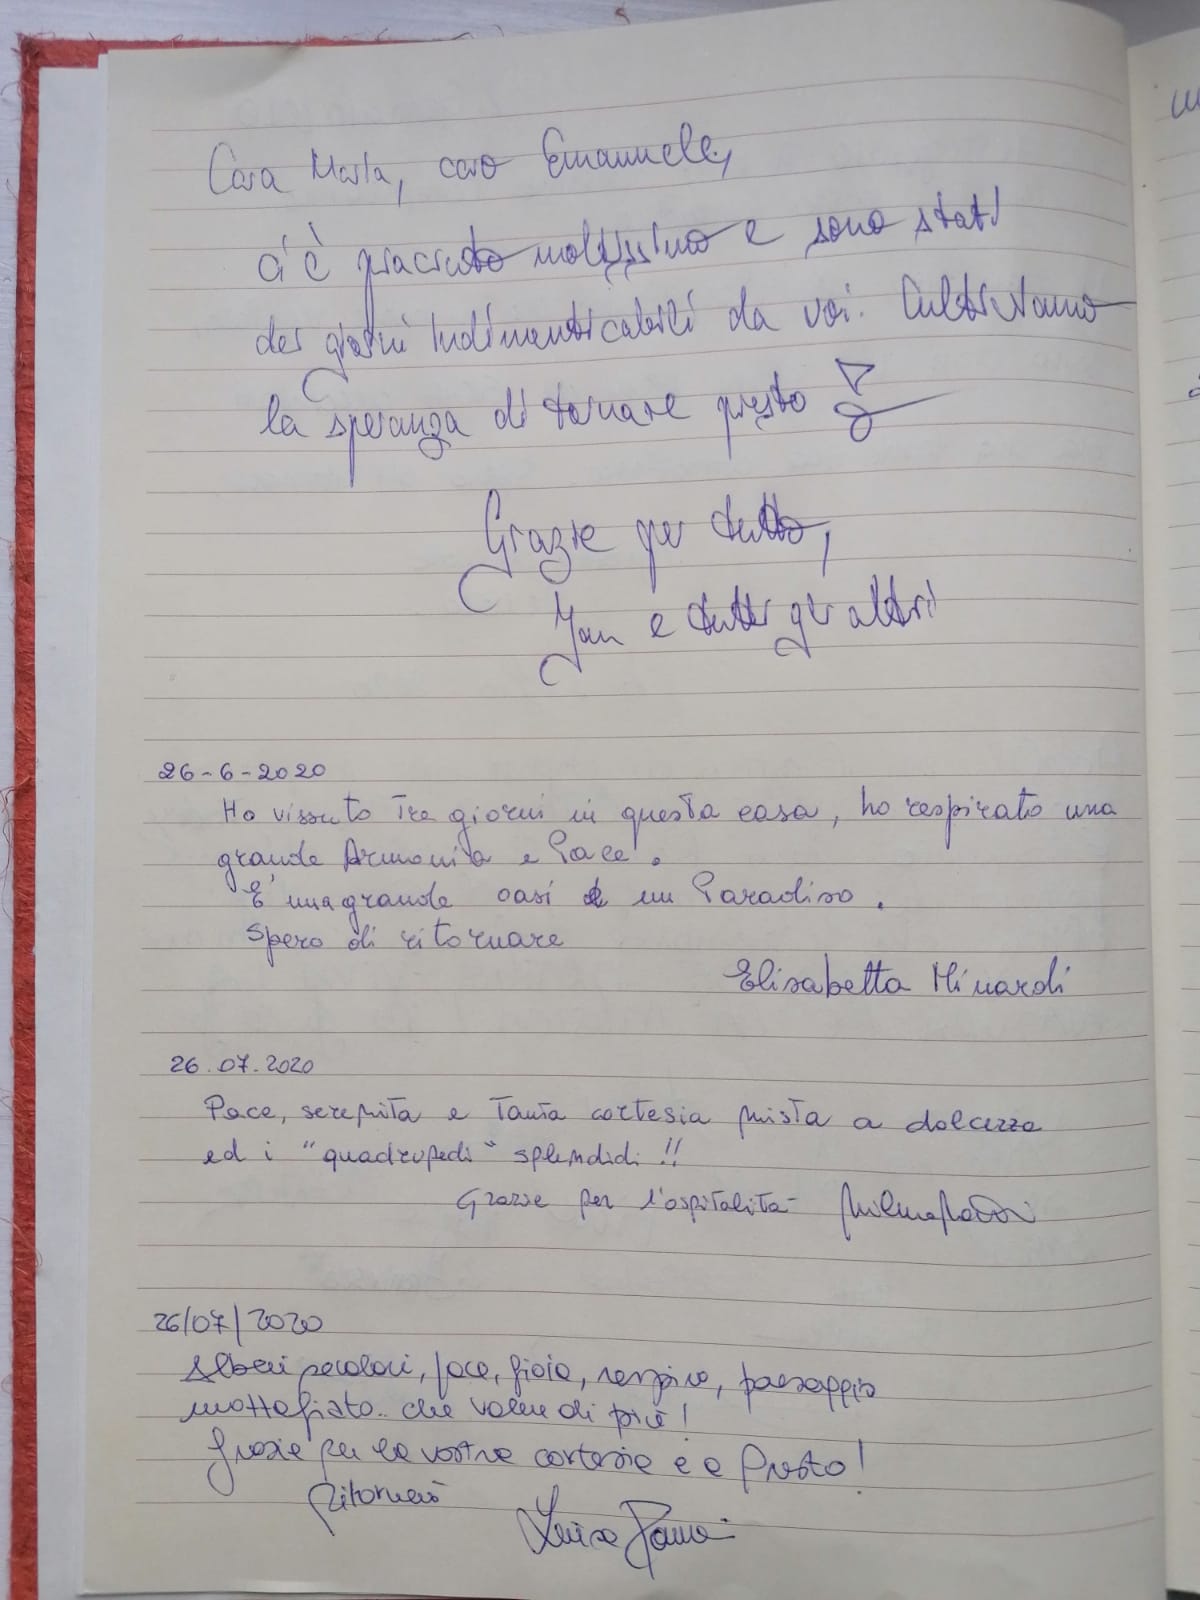 Cara Marta, caro Emanuele,
ci è piaciuto moltissimo e sono stati
dei giorni indimenticabili da voi. Cultiviamo
la speranza di tornare presto
Grazie per tutto,
Jan e tutti gli altri
26-6-2020
Ho vissuto tre giorni in questa casa, ho respirato una
grande Armonia e Pace.
E' una grande oasi un Paradiso.
Spero di ritornare
Elisabetta Minardi
26.07.2020
Pace, serenità e tanta cortesia mista a dolcezza
ed i "quadrupedi" splendidi!!
Grazie per l'ospitalità
26/07/2020
Alberi secolari, pace, gioia, respiro, paesaggio
mozzafiato.. che volere di più!
Grazie per la vostra cortesia e a Presto!
Ritornerò
Luisa